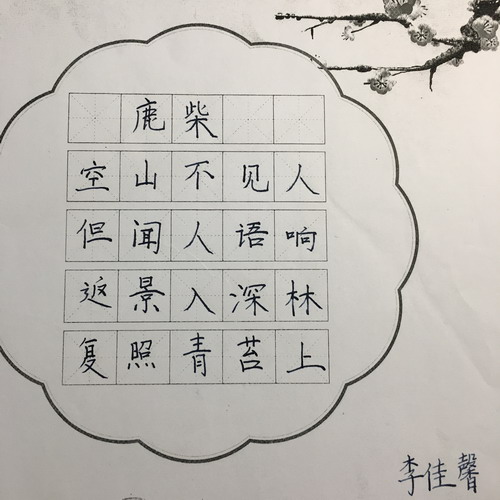 鹿柴
空山不见人
但闻人语响
返景入深林
复照青苔上
李佳馨